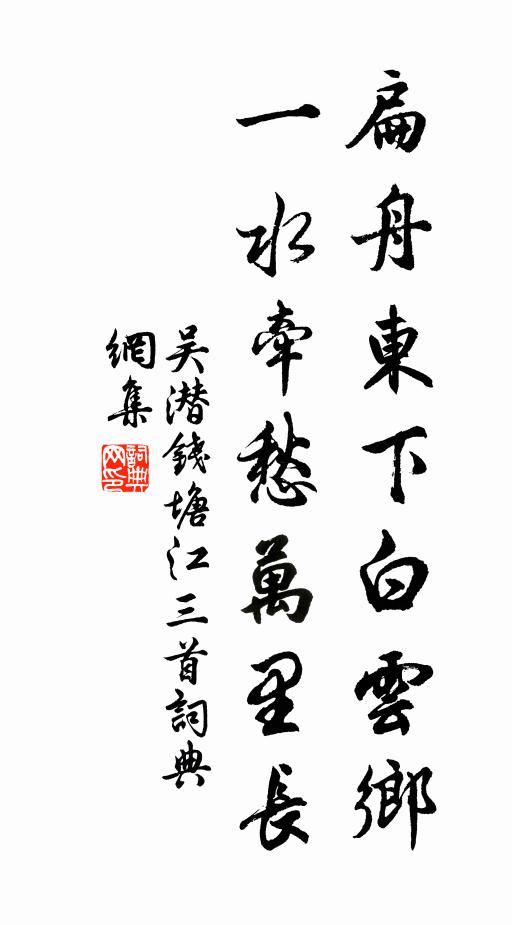 扁舟東下白雲鄉
一水牽愁萬里長
吴潜錢塘江三首詞典
網集
詞典網印